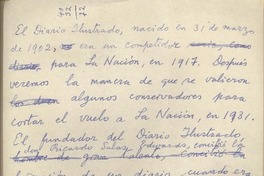 El Diario Ilustrado, nacido en 31 de marzo
de 1902, era un competidor
para La Nación, en 1917. Después
veremos la manera de que se valieron
algunos conservadores para
cortar el vuelo a La Nación, en 1931.
El fundador del Diario Ilustrado,
don Ricardo Salas Edwards, concibió la
de un diario, cuando era